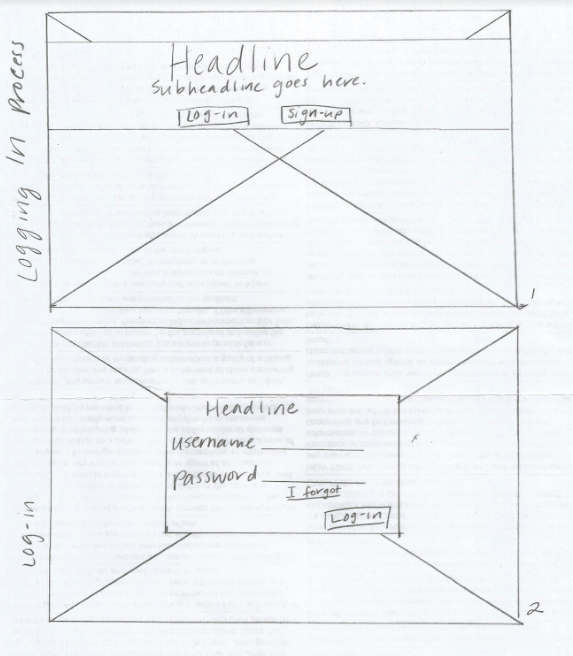 Logging In Process
Headline
Subheadline goes here.
Log-in
Sign-up
1
Log-in
Headline
username
Password
I forgot
Log-in
2